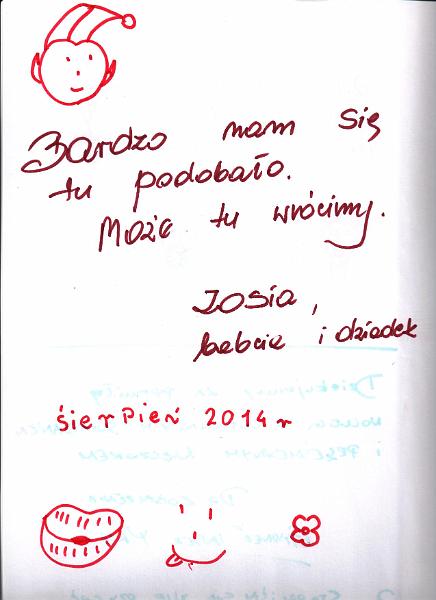 Bardzo nam się
tu podobało.
Może tu wrócimy.
Zosia,
babcia i dziadek
śierpień 2014 r